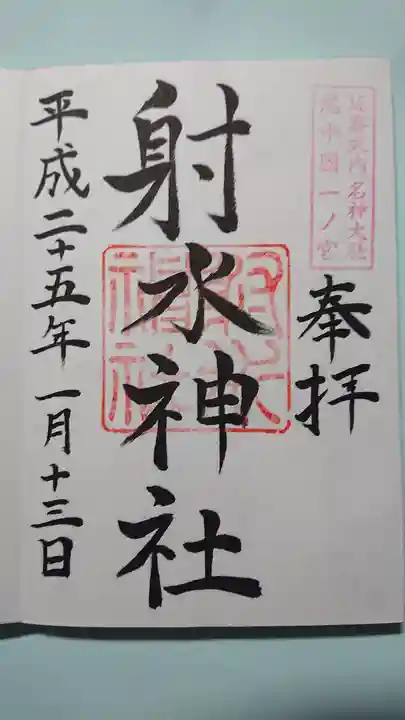 延喜式内名神大社
越中国一ノ宮
奉拝
射水神社
射水神社
平成二十五年一月十三日